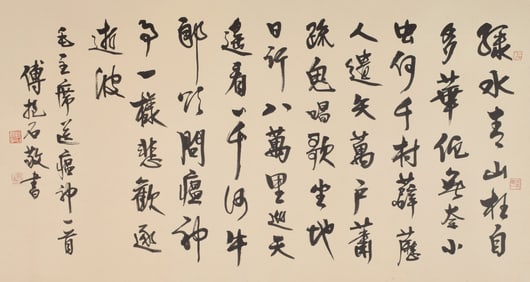 綠水青山枉自
多華佗無奈小
虫何千村薜荔
人遺矢萬戶蕭
疏鬼唱歌坐地
日行八萬里巡天
遙看一千河牛
郎欲問瘟神
事一樣悲歡逐
逝波
毛主席送瘟神一首
傅抱石敬書